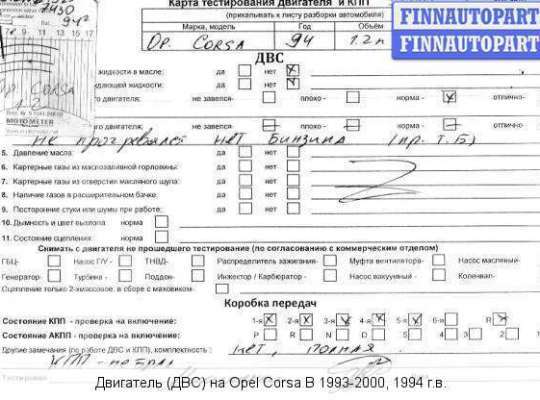 Карта тестирования двигателя и КПП
(прикалывать к листу разборки автомобиля)
FINNAUTOPART
FINNAUTOPART
Марка, модель Год Объём
Op. CORSA 94 1.2 л
ДВС
жидкости в масле: да нет X
жидкости: да нет X
двигателя: не завелся- плохо - норма - X отлично-
двигателя: не завелся- плохо - норма - отлично-
не прогревался нет бензина (пр. Т.Б)
5. Давление масла: да нет
6. Картерные газы из маслозаливной горловины: да нет
7. Картерные газы из отверстия масляного щупа: да нет
8. Наличие газов в расширительном бачке: да нет
9. Посторонние стуки или шумы при работе: да нет
10. Дымность и цвет выхлопа норма
11. Состояние сцепления: норма
Снимать с двигателя не прошедшего тестирование (по согласованию с коммерческим отделом)
ГБЦ- Насос Г/У - ТНВД- Распределитель зажигания- Муфта вентилятора- Насос масляный-
Генератор- Турбина - Поддон- Инжектор / Карбюратор - Насос вакуумный - Коленвал-
Сцепление только 2-хмассовое, в сборе с маховиком-
Коробка передач
Состояние КПП - проверка на включение: 1-я X 2-я X 3-я X 4-я X 5-я X 6-я R X
Состояние АКПП - проверка на включение: P R N D 5 4 3 2
Другие замечания (по работе ДВС и КПП), комплектность: нет, полная.
Двигатель (ДВС) на Opel Corsa B 1993-2000, 1994 г.в.